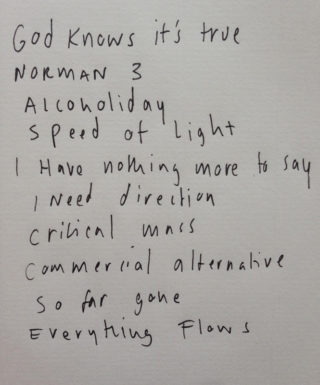 God Knows it's true
NORMAN 3
Alcoholiday
Speed of light
I Have nothing more to say
I Need direction
Critical mass
Commercial alternative
So far gone
Everything Flows